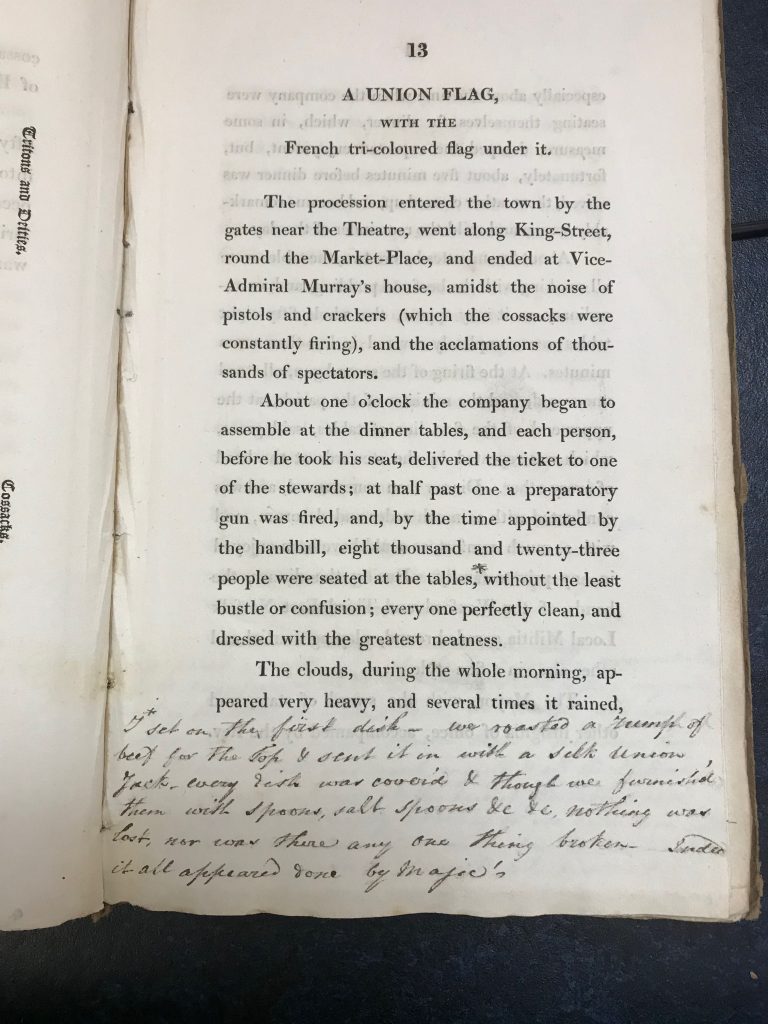 13
A UNION FLAG,
WITH THE
French tri-coloured flag under it.
The procession entered the town by the
gates near the Theatre, went along King-Street,
round the Market-Place, and ended at Vice-
Admiral Murray's house, amidst the noise of
pistols and crackers (which the cossacks were
constantly firing), and the acclamations of thou-
sands of spectators.
About one o'clock the company began to
assemble at the dinner tables, and each person,
before he took his seat, delivered the ticket to one
of the stewards; at half past one a preparatory
gun was fired, and, by the time appointed by
the handbill, eight thousand and twenty-three
people were seated at the tables,* without the least
bustle or confusion; every one perfectly clean, and
dressed with the greatest neatness.
The clouds, during the whole morning, ap-
peared very heavy, and several times it rained,
*I set on the first dish – we roasted a rump of
beef for the Top & sent it in with a silk Union
Jack – every dish was coverd & though we furnished
them with spoons, salt spoons &c &c, nothing was
lost, nor was there any one thing broken – Indee
it all appeared done by Majic's
Tritons and Deities.
Cossacks.